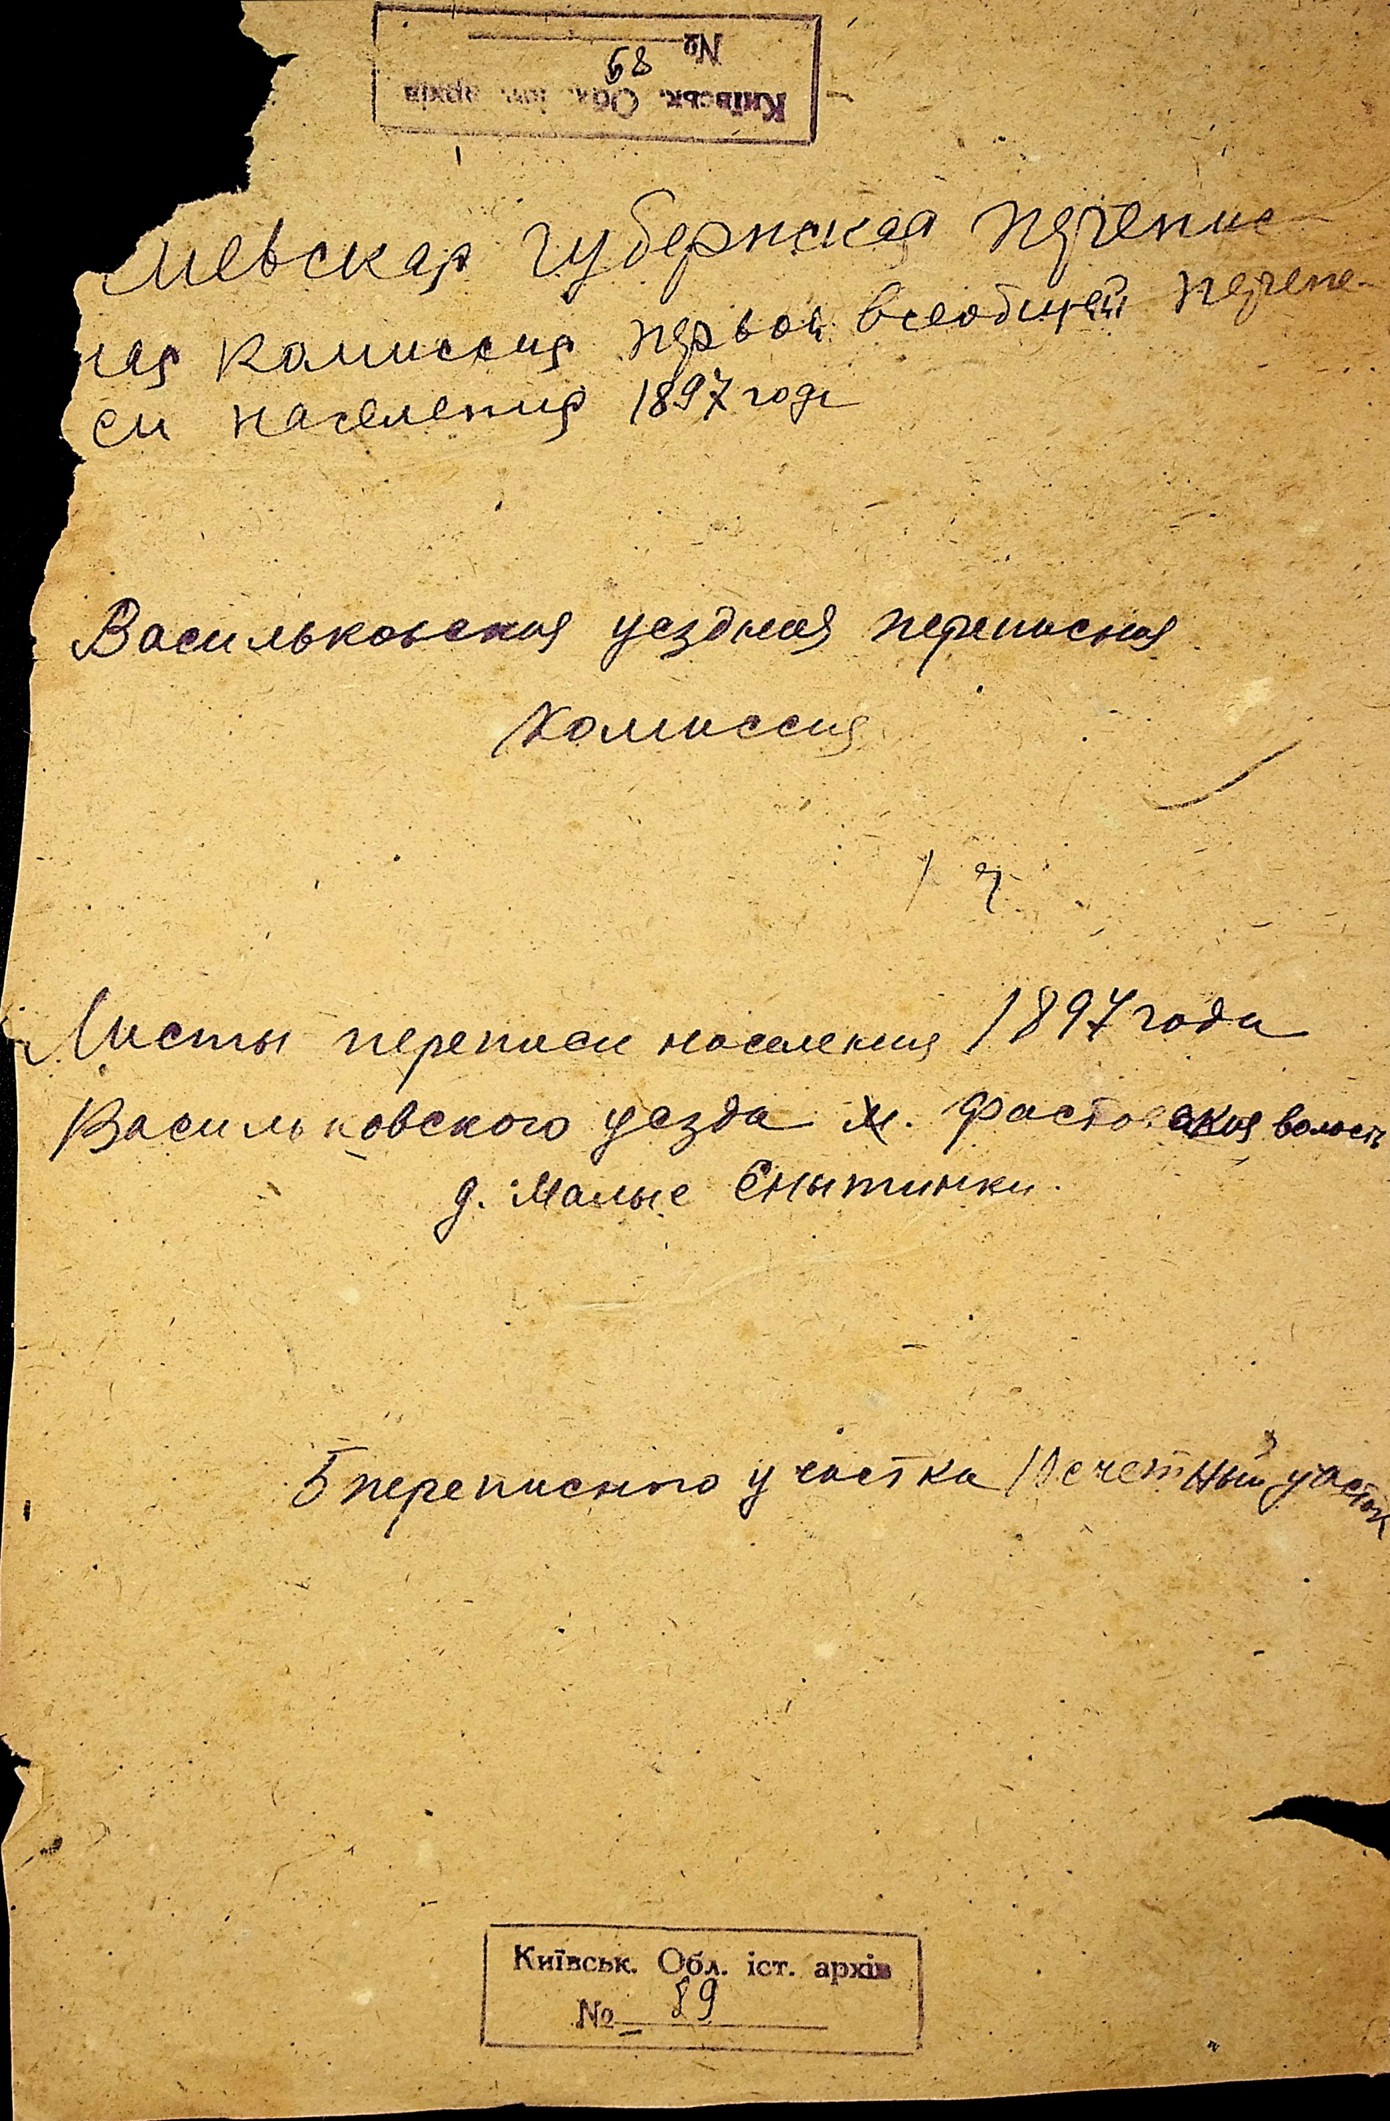 Київськ. Обл. іст. архів
№ 89
иевская губернская перепис
ная комиссия первой всеобщей перепи-
си населения 1897 года
Васильковская уездная переписная
комиссия
Листы переписи населения 1897 года
Васильковского уезда м. Фастовская волость
д. Малые Снытинки.
5 переписного участка 10 счетный участок
Київськ. Обл. іст. архів
№ 89